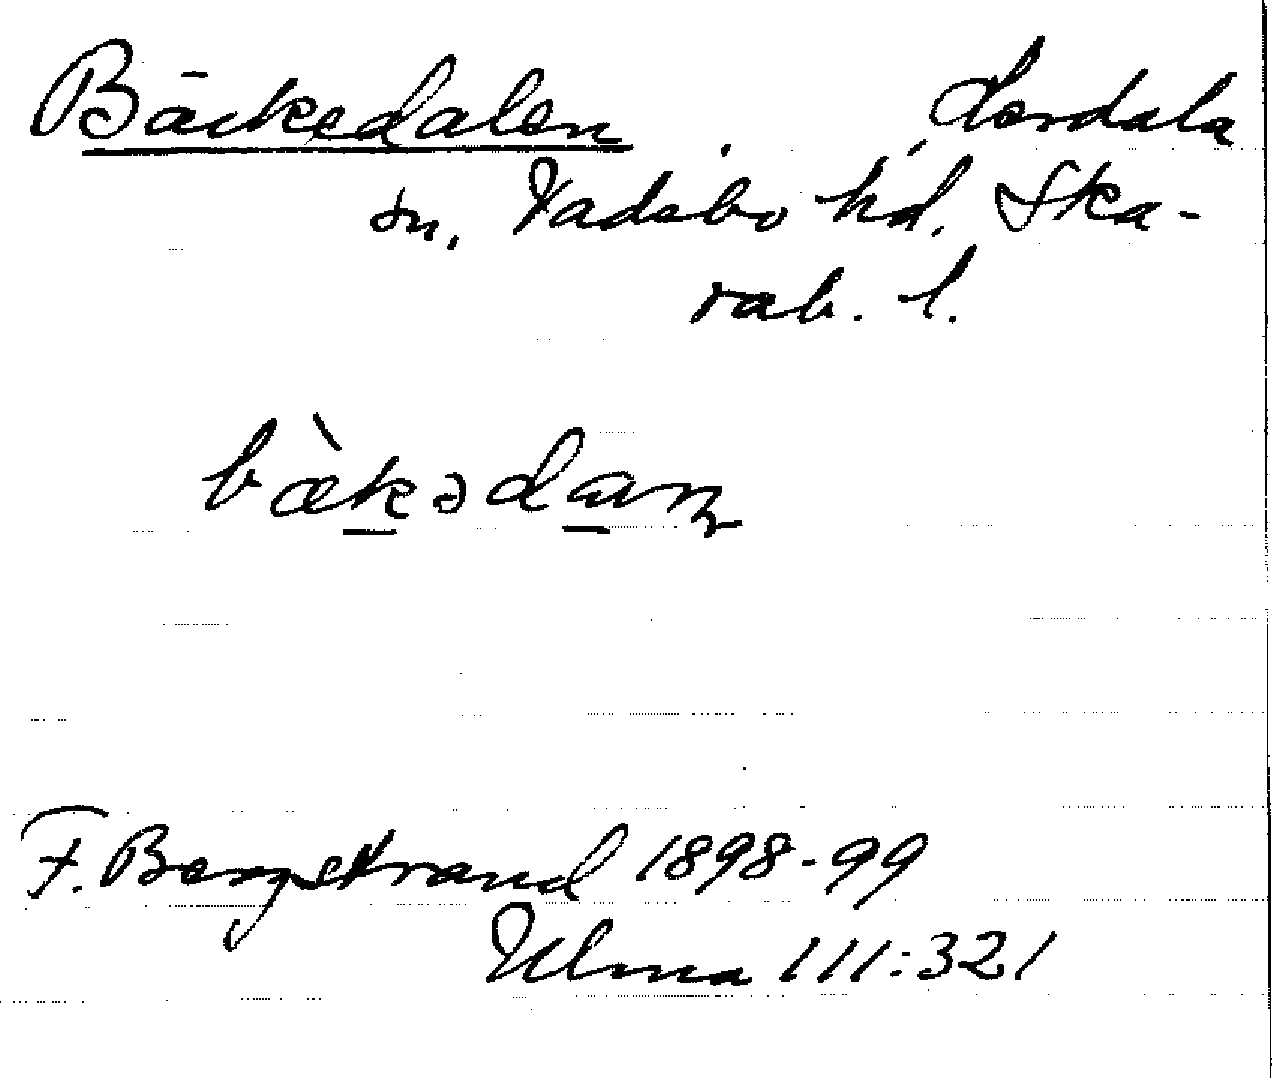 Bäckedalen, Lerdala
sn, Vadsbo hd. Ska-
rab. l.
F. Bergstrand 1898-99
Ulma 111:321